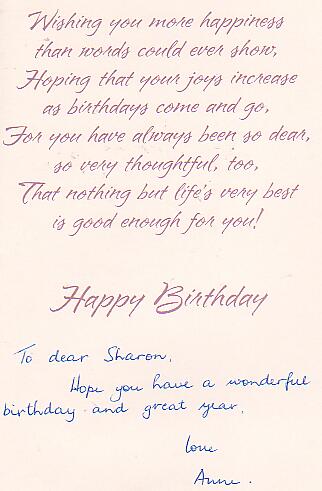 Wishing you more happiness
than words could ever show,
Hoping that your joys increase
as birthdays come and go,
For you have always been so dear,
so very thoughtful, too,
That nothing but life's very best
is good enough for you!
Happy Birthday
To dear Sharon,
Hope you have a wonderful
birthday and great year,
love
Anne.